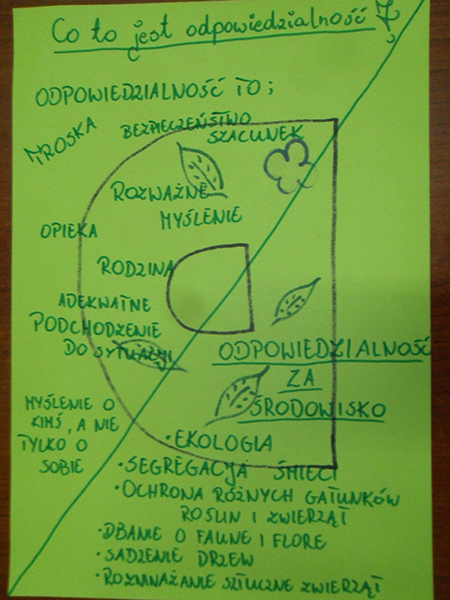 Co to jest odpowiedzialność?
ODPOWIEDZIALNOŚĆ TO:
TROSKA
BEZPIECZEŃSTWO
SZACUNEK
ROZWAŻNE
MYŚLENIE
OPIEKA
RODZINA
ADEKWATNE
PODCHODZENIE
DO SYTUACJI
MYŚLENIE O
KIMŚ, A NIE
TYLKO O
SOBIE
ODPOWIEDZIALNOŚĆ
ZA
ŚRODOWISKO
• EKOLOGIA
• SEGREGACJA ŚMIECI
• OCHRONA RÓŻNYCH GATUNKÓW
ROŚLIN I ZWIERZĄT
• DBANIE O FAUNE I FLORE
• SADZENIE DRZEW
• ROZMNAŻANIE SZTUCZNE ZWIERZĄT